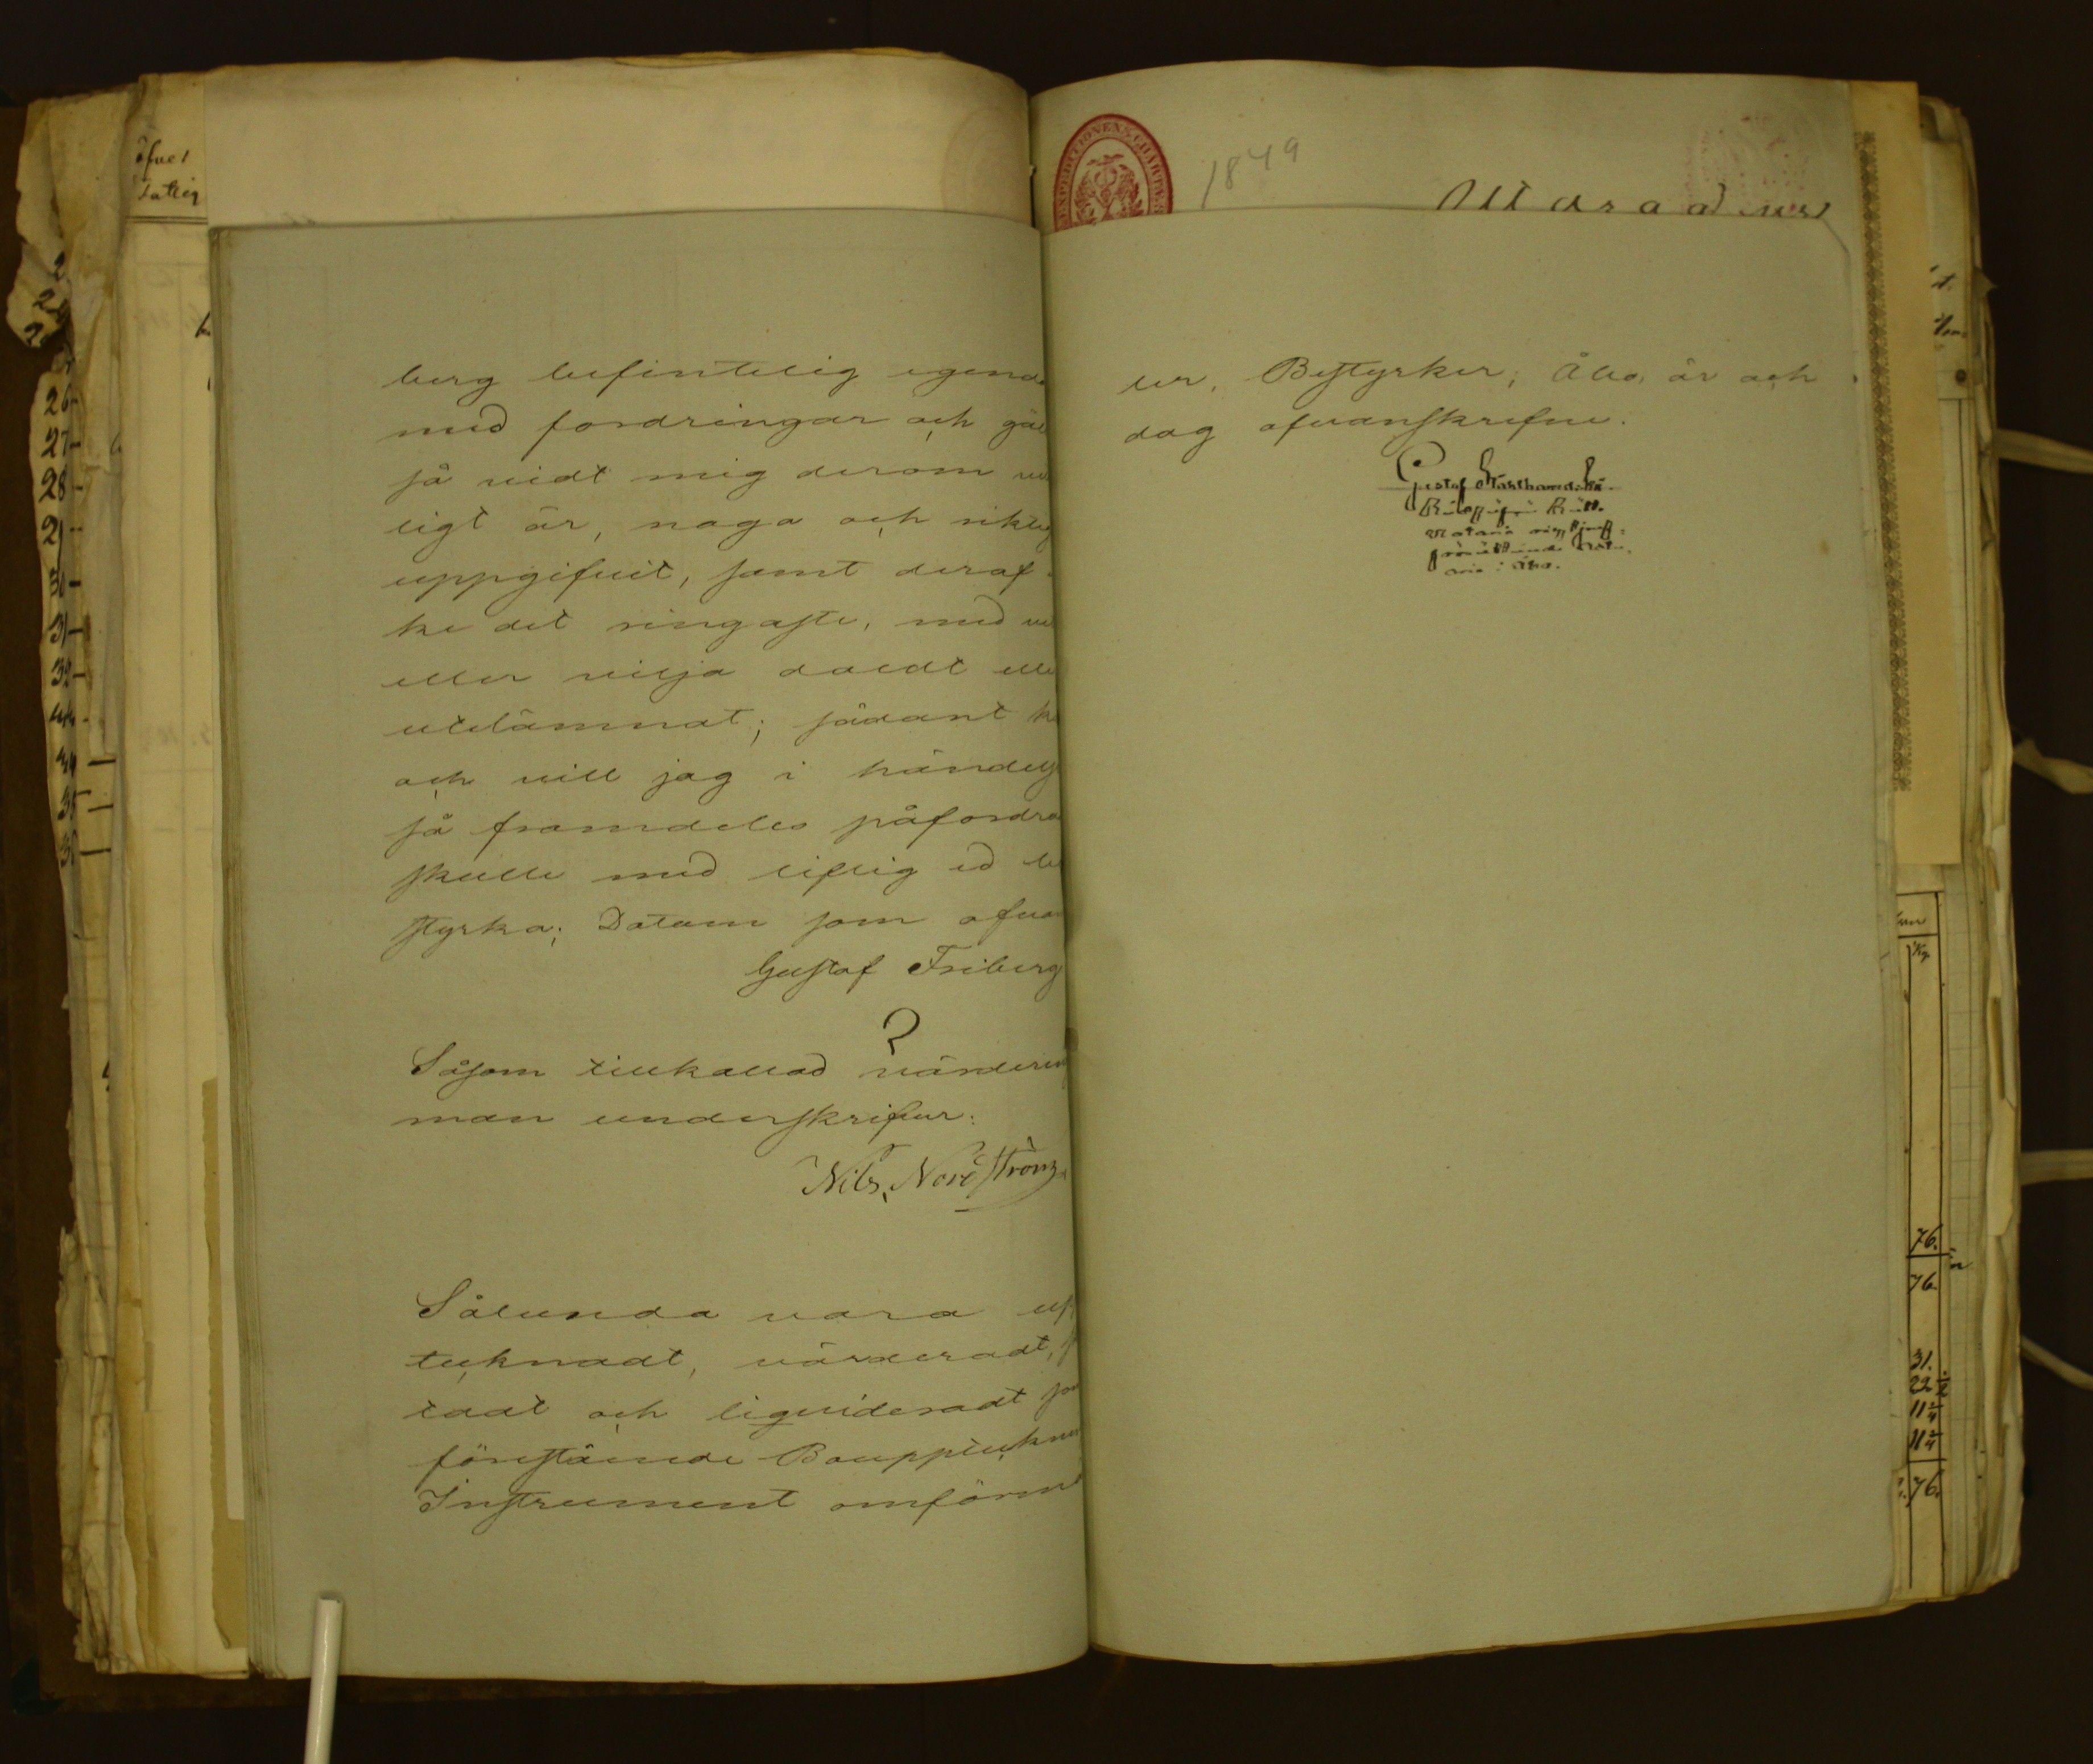 berg befintelig egend
med fordringar och gäl
så vidt mig derom
ligt är, noga och riktig
uppgifvit, samt deraf
ke det ringaste, med
eller vilja doldt elle
utelämnat; sådant k
och vill jag i händelse
så framdeles påfordra
skulle med liflig ed be
styrka; Datum som ofvan
Gustaf Friberg
Såsom tillkallad värderings
man underskrifver:
Nils Nordström
Sålunda vara up
tecknadt, värderadt,
tadt och liquideradt som
förestående Bouppteckni
Instrument omförm
1849
Utdrag
ler. Bestyrker; Åbo, år och
dag ofvanskrifne.
Gustaf
Notarie
i Åbo.
26
27
28
29
30
31
32
34
35
36
76.
76.
31.
22
11
11
76.